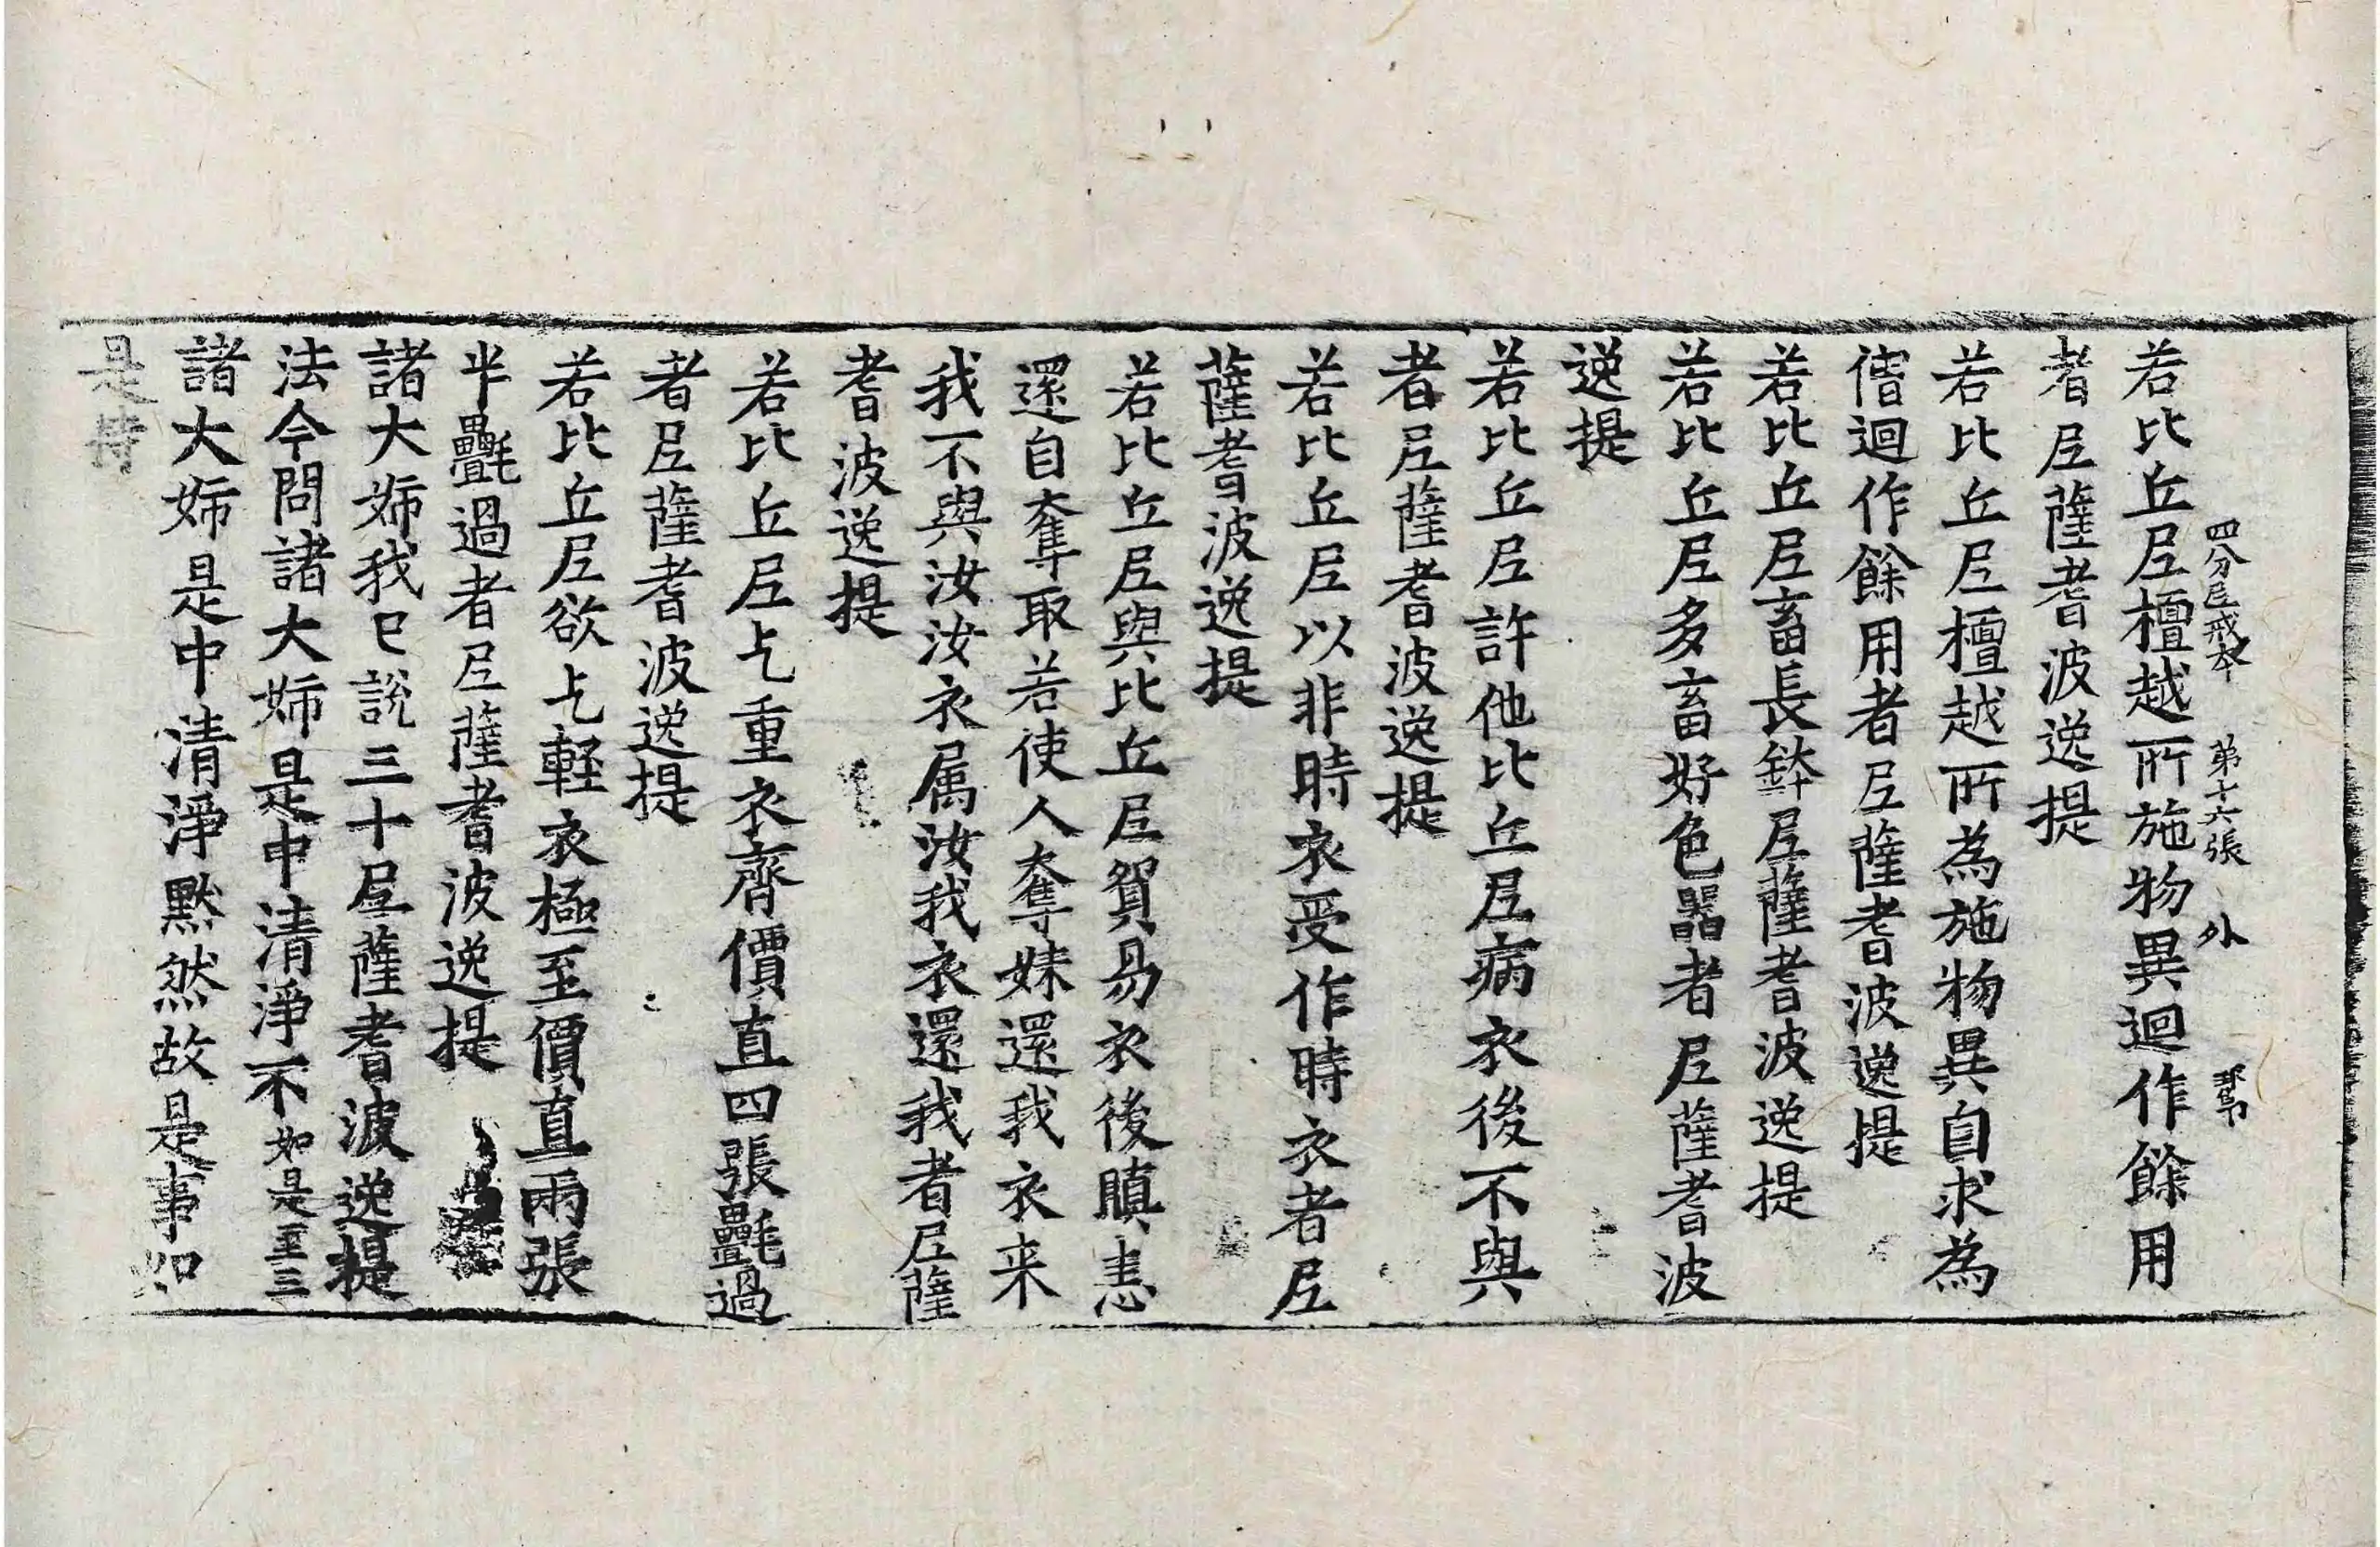 四分尼戒本 第十六張 外
若比丘尼檀越所施物異迴作餘用
者尼薩耆波逸提
若比丘尼檀越所為施物異自求為
僧迴作餘用者尼薩耆波逸提
若比丘尼畜長鉢尼薩耆波逸提
若比丘尼多畜好色器者尼薩耆波
逸提
若比丘尼許他比丘尼病衣後不與
者尼薩耆波逸提
若比丘尼以非時衣受作時衣者尼
薩耆波逸提
若比丘尼與比丘尼貿易衣後瞋恚
還自奪取若使人奪妹還我衣来
我不與汝汝衣属汝我衣還我者尼薩
耆波逸提
若比丘尼乞重衣齊價直四張㲲過
者尼薩耆波逸提
若比丘尼欲乞輕衣極至價直兩張
半㲲過者尼薩耆波逸提
諸大姊我已說三十尼薩耆波逸提
法今問諸大姊是中清淨不如是至三
諸大姊是中清淨黙然故是事如
是持